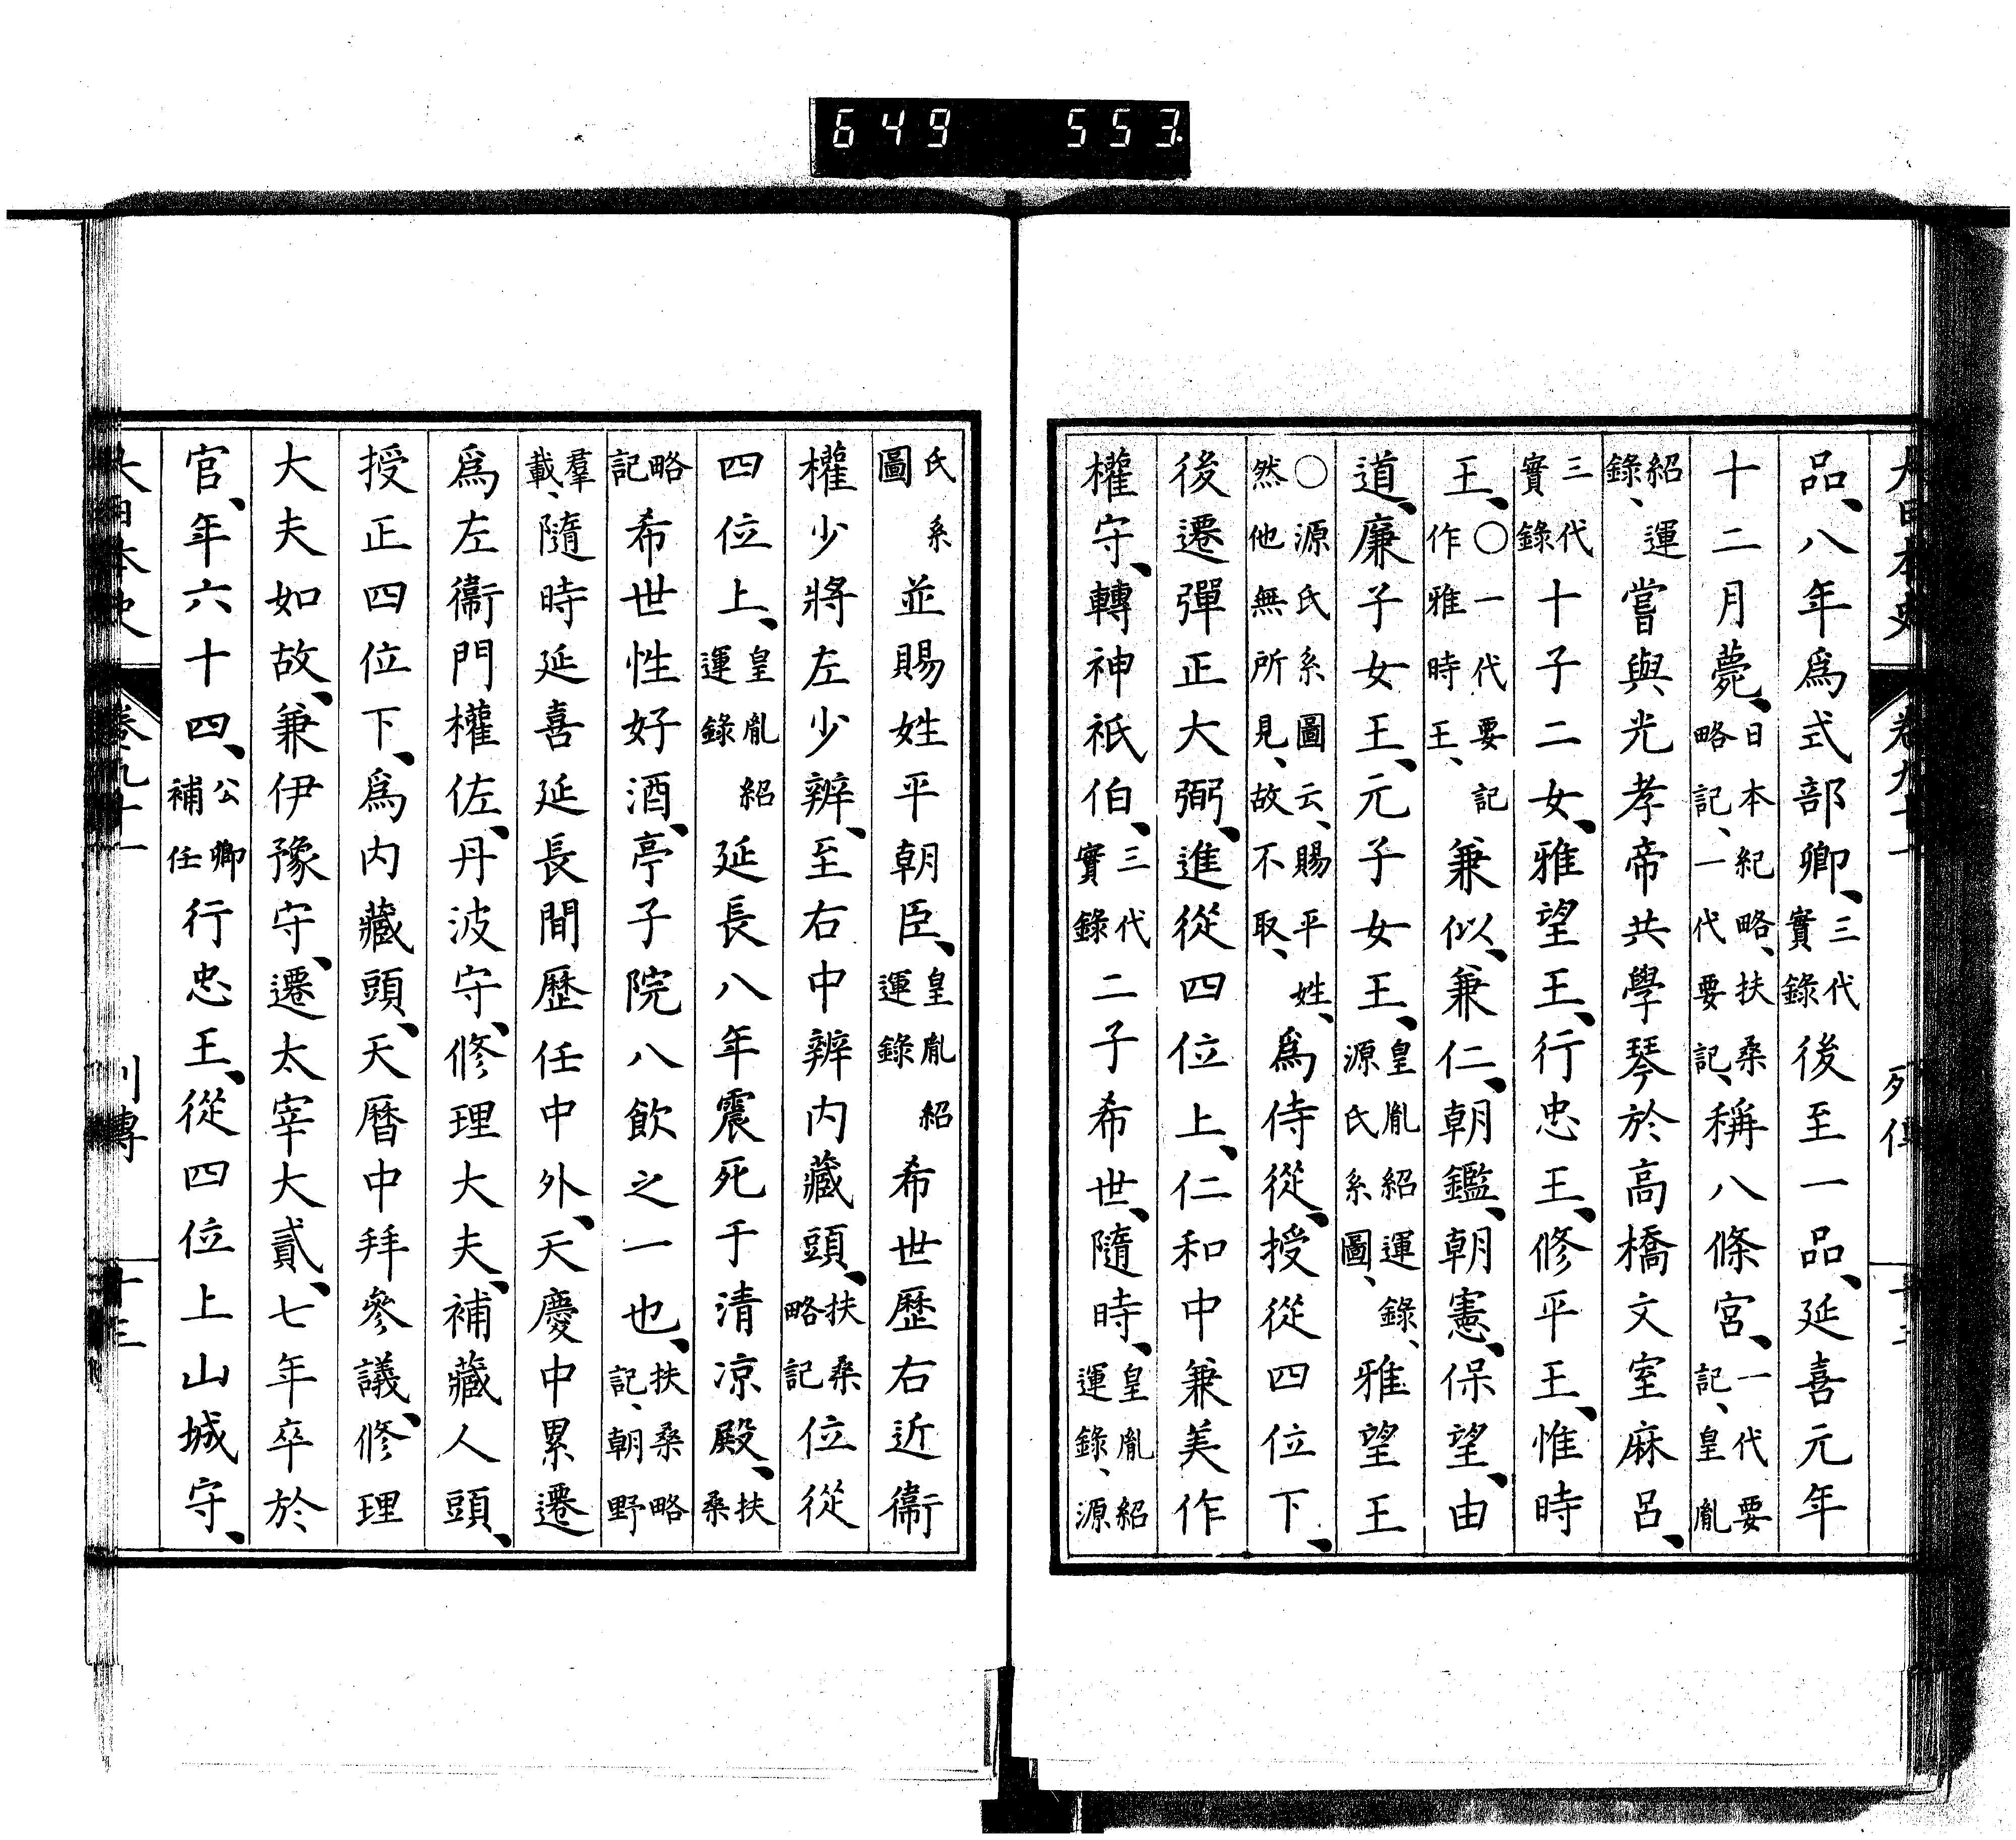 649 553
大日本史 卷九十一 列傳
品、八年爲式部卿、三代實錄後至一品、延喜元年
十二月薨、日本紀略、扶桑略記、一代要記、稱八條宮、一代要記、皇胤
紹運錄、嘗與光孝帝共學琴於高橋文室麻呂、
三代實錄十子二女、雅望王、行忠王、修平王、惟時
王、○一代要記作雅時王、兼似、兼仁、朝鑑、朝憲、保望、由
道、廉子女王、元子女王、皇胤紹運錄、源氏系圖、雅望王
○源氏系圖云、賜平姓、然他無所見、故不取、爲侍從、授從四位下、
後遷彈正大弼、進從四位上、仁和中兼美作
權守、轉神祇伯、三代實錄二子希世、隨時、皇胤紹運錄、源
氏系圖並賜姓平朝臣、皇胤紹運錄希世歷右近衞
權少將左少辨、至右中辨內藏頭、扶桑略記位從
四位上、皇胤紹運錄延長八年震死于清凉殿、扶桑
略記希世性好酒、亭子院八飮之一也、扶桑略記、朝野
羣載、隨時延喜延長間歷任中外、天慶中累遷
爲左衞門權佐、丹波守、修理大夫、補藏人頭、
授正四位下、爲內藏頭、天曆中拜參議、修理
大夫如故、兼伊豫守、遷太宰大貳、七年卒於
官、年六十四、公卿補任行忠王、從四位上山城守、
大日本史 卷九十一 列傳 十三